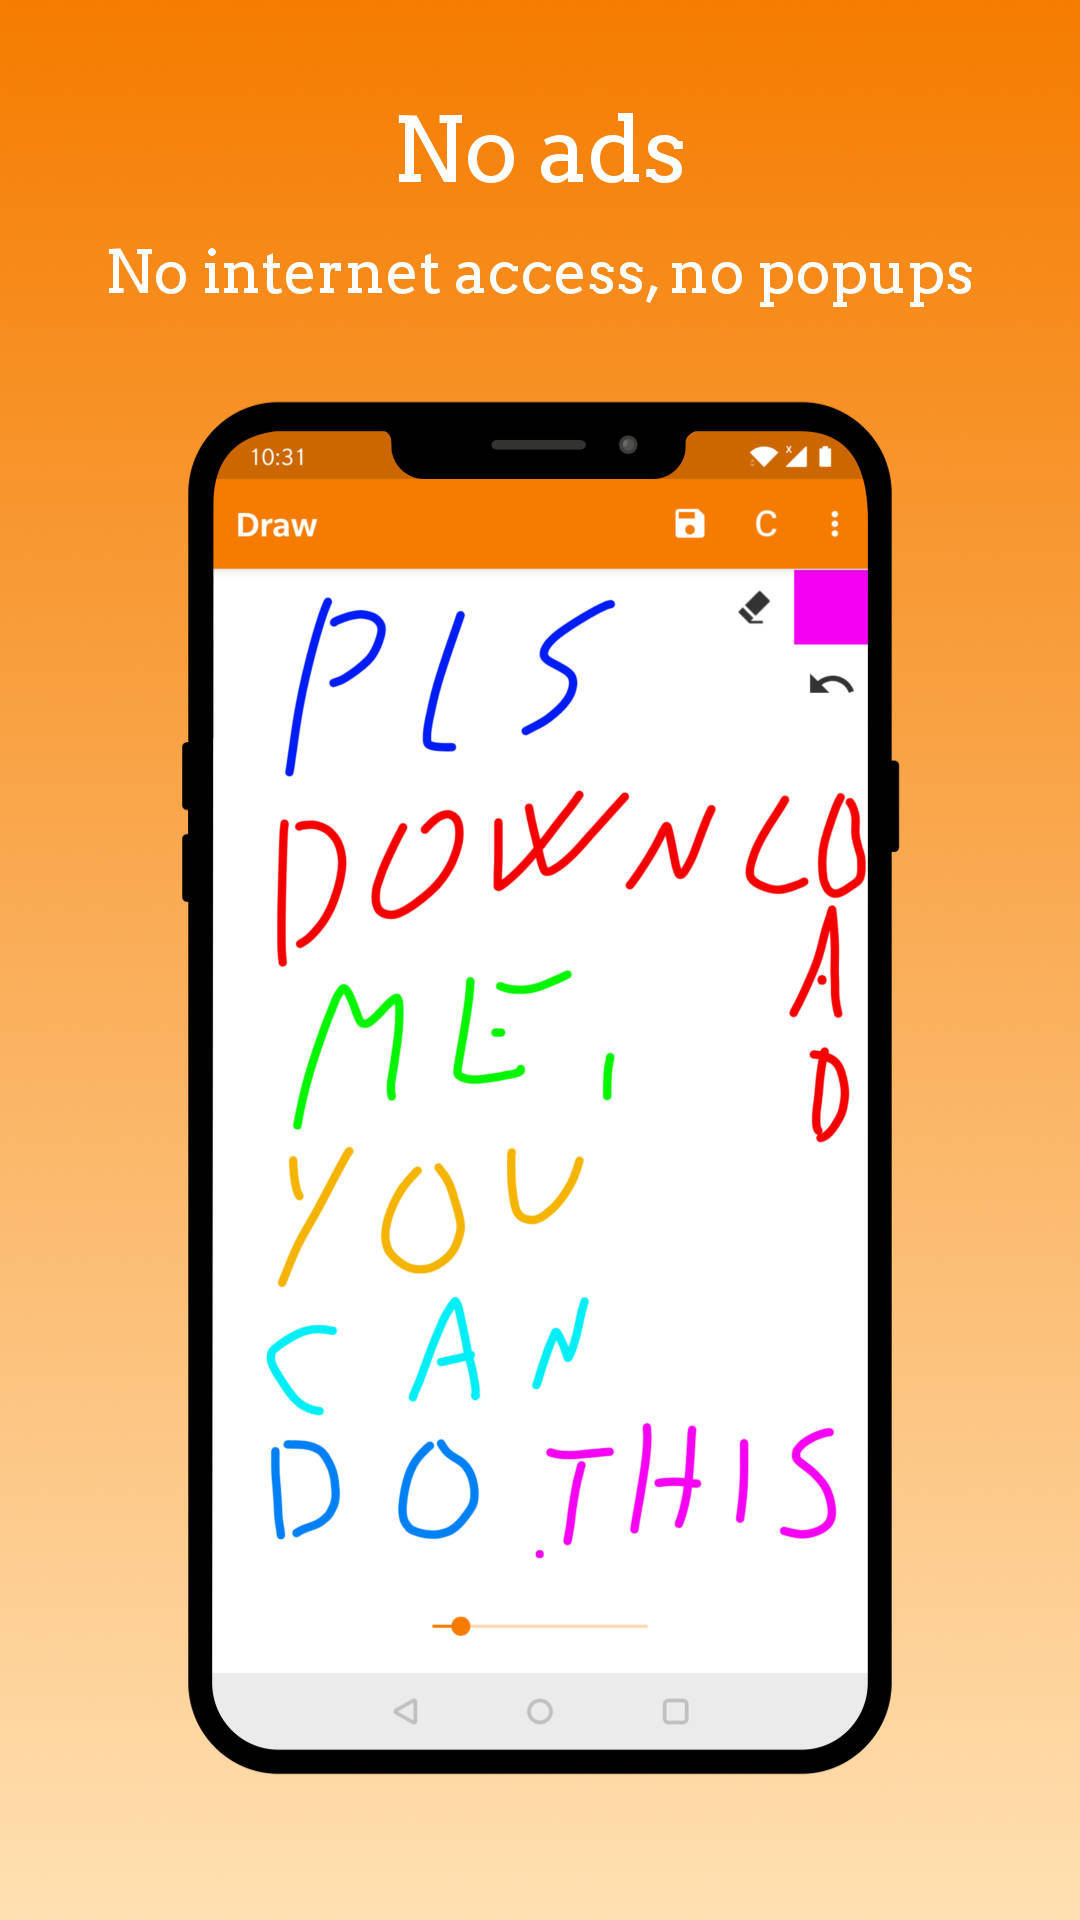 No ads
No internet access, no popups
10:31
Draw C
PLS
DOWNLOAD
ME,
YOU
CAN
DO THIS